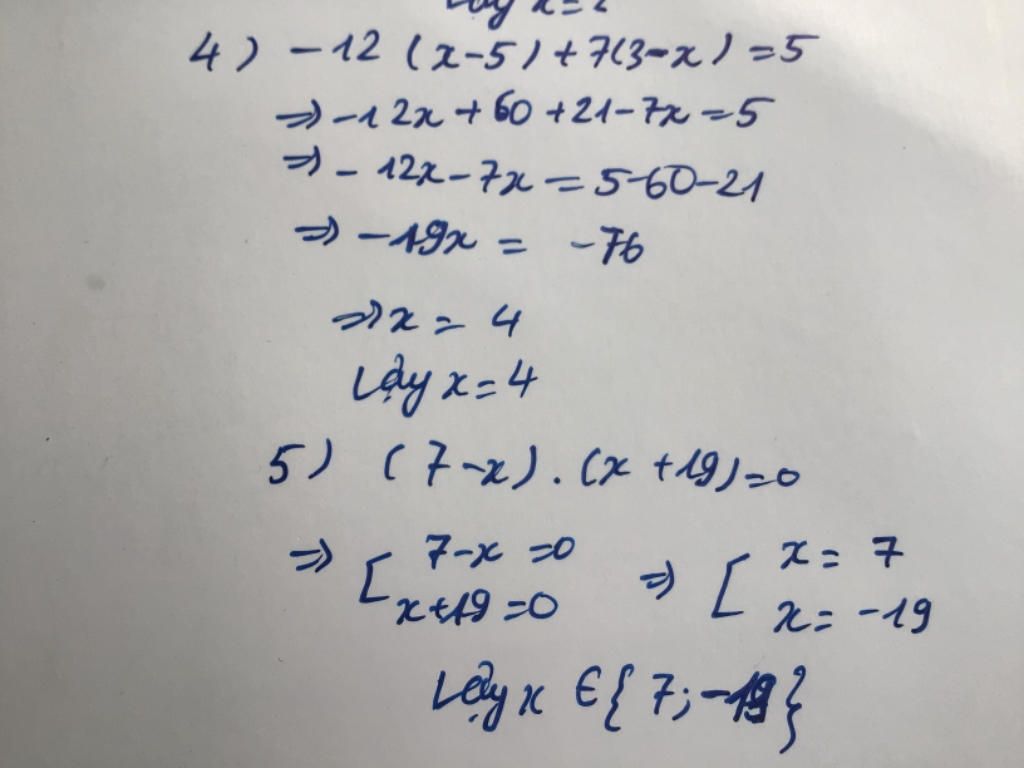 Vậy x = 2
4) -12 (x-5) + 7(3-x) = 5
⇒ -12x + 60 + 21 - 7x = 5
⇒ - 12x - 7x = 5-60-21
⇒ -19x = -76
⇒ x = 4
Vậy x = 4
5) (7-x) . (x+19) = 0
⇒ [ 7-x = 0 ⇒ [ x = 7
x+19 = 0 x = -19
Vậy x ∈ {7; -19}